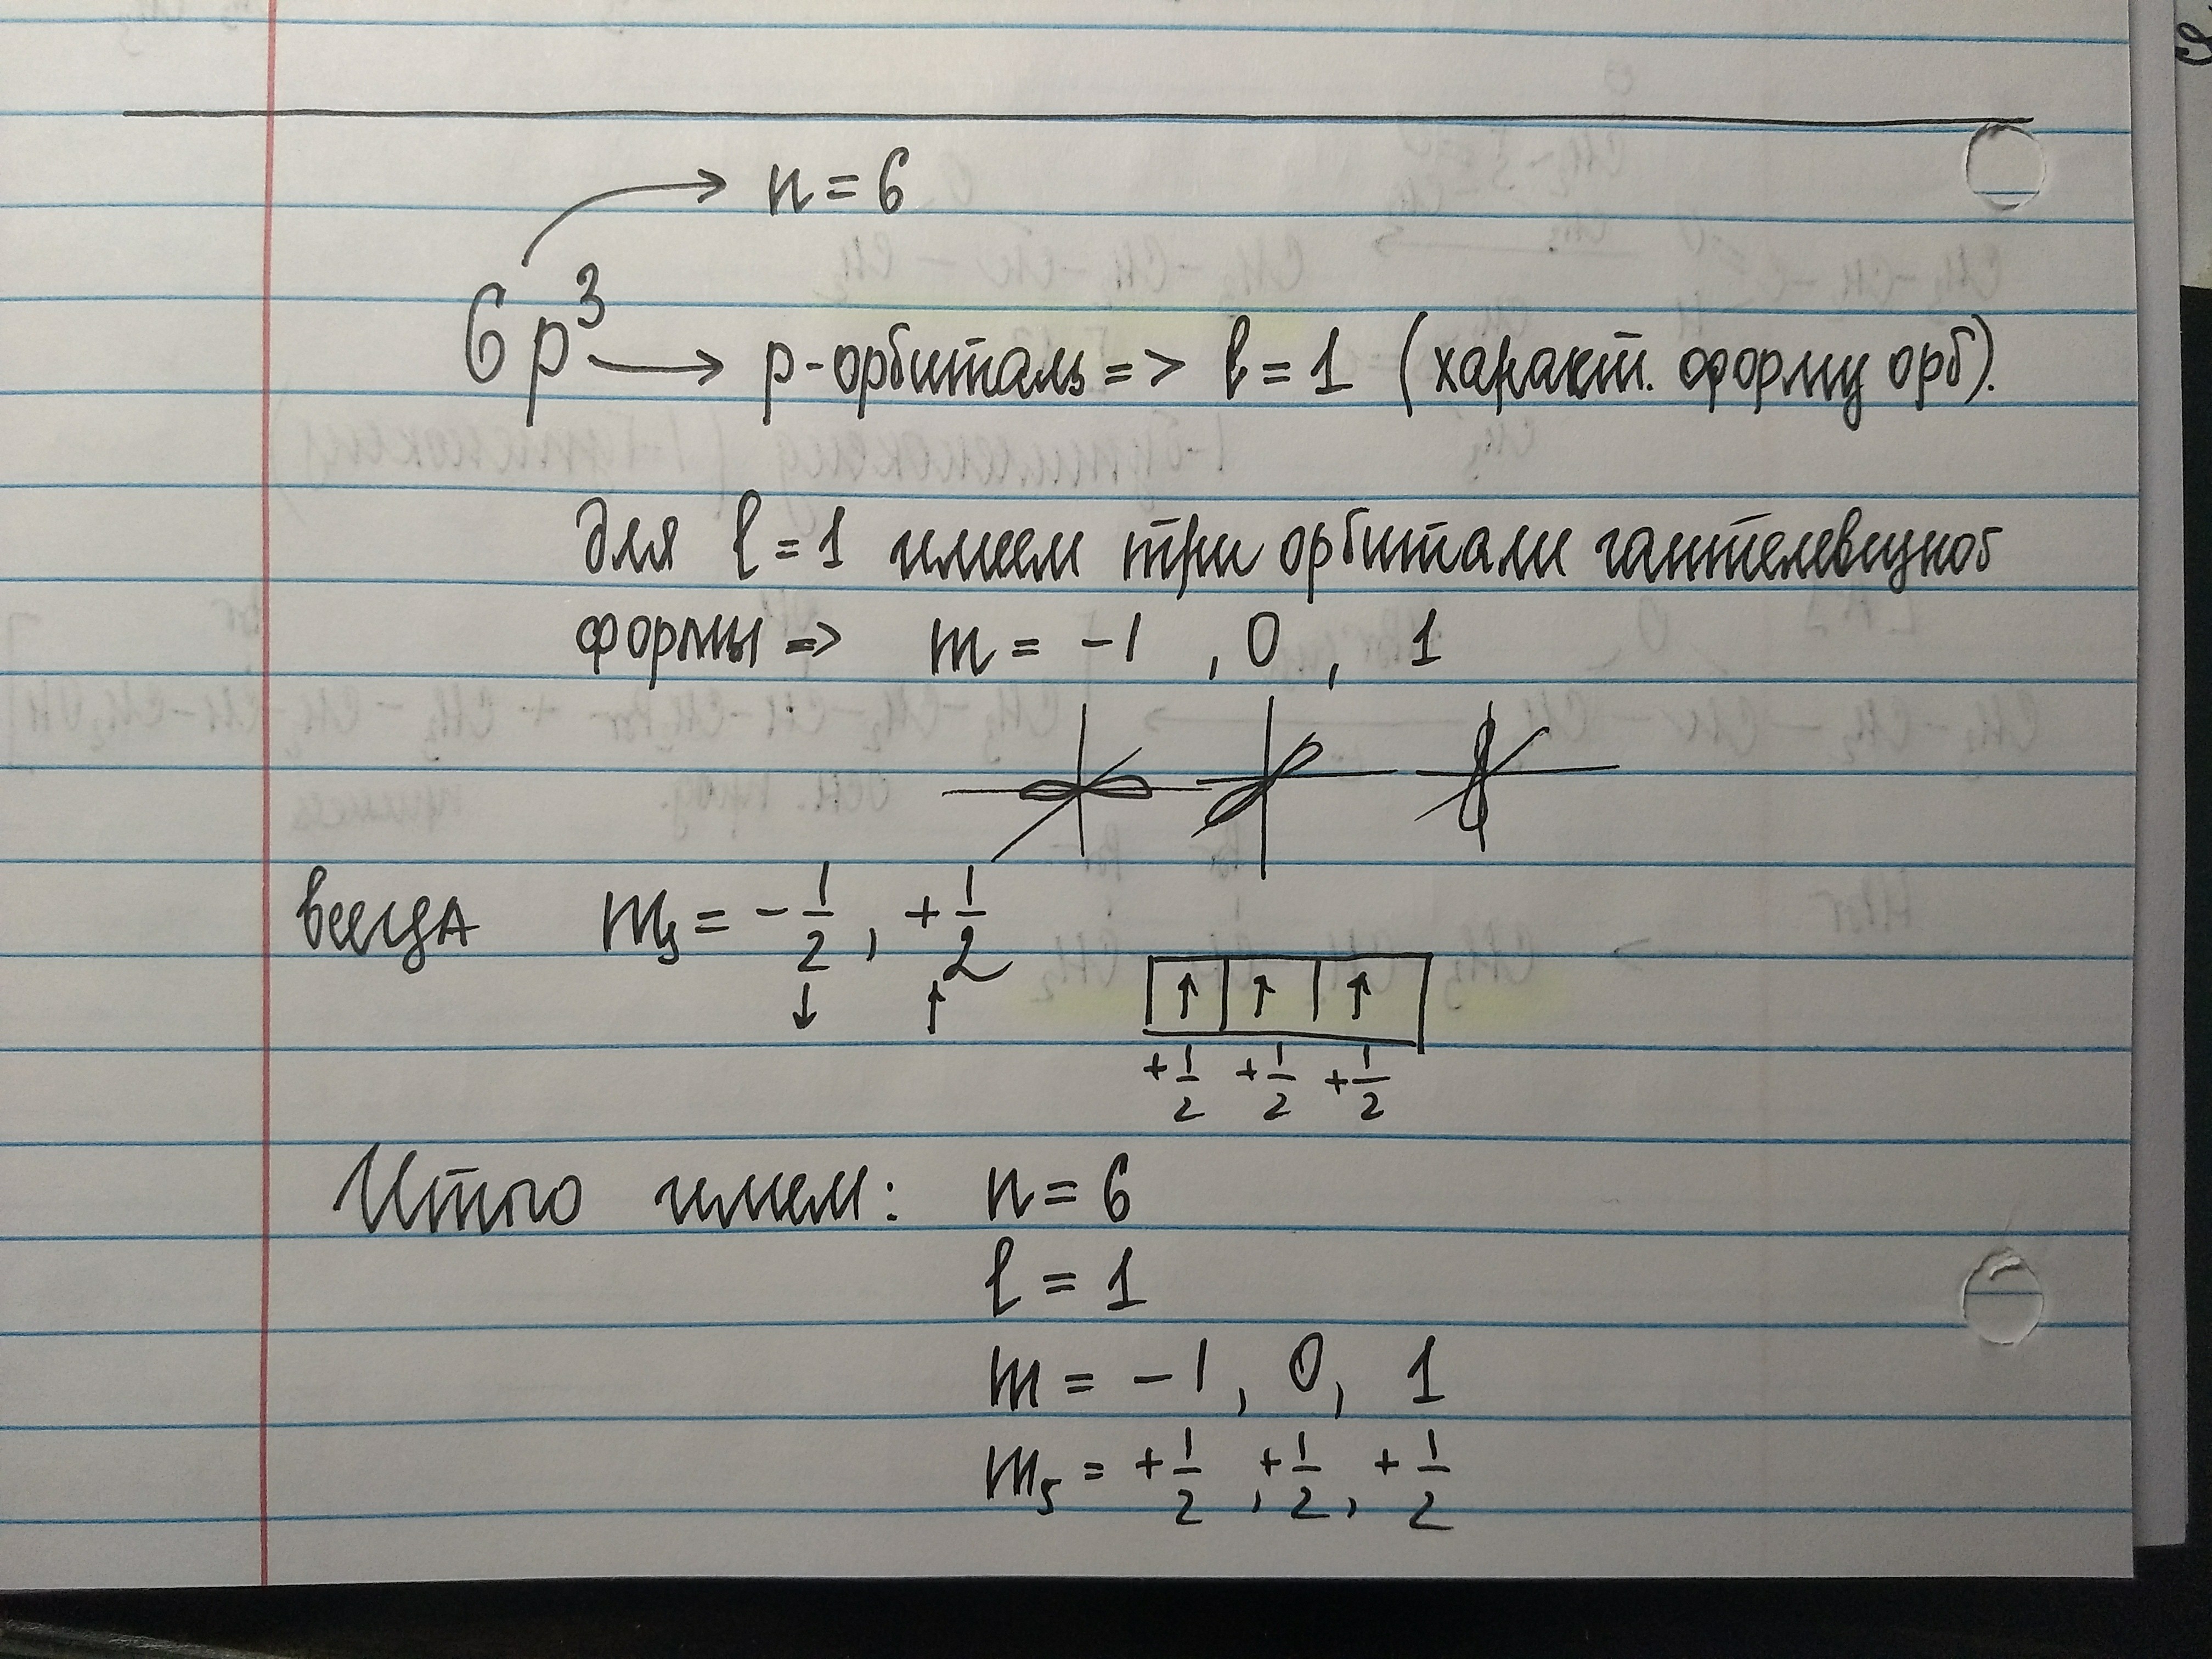 n = 6
6p³
p-орбиталь => l = 1 (характ. форму орб).
для l = 1 имеем три орбитали гантелевидной
формы => m = -1 , 0 , 1
всегда ms = -1/2 , +1/2
↓ ↑
↑ ↑ ↑
+1/2 +1/2 +1/2
Итого имеем: n = 6
l = 1
m = -1, 0, 1
ms = +1/2 , +1/2 , +1/2